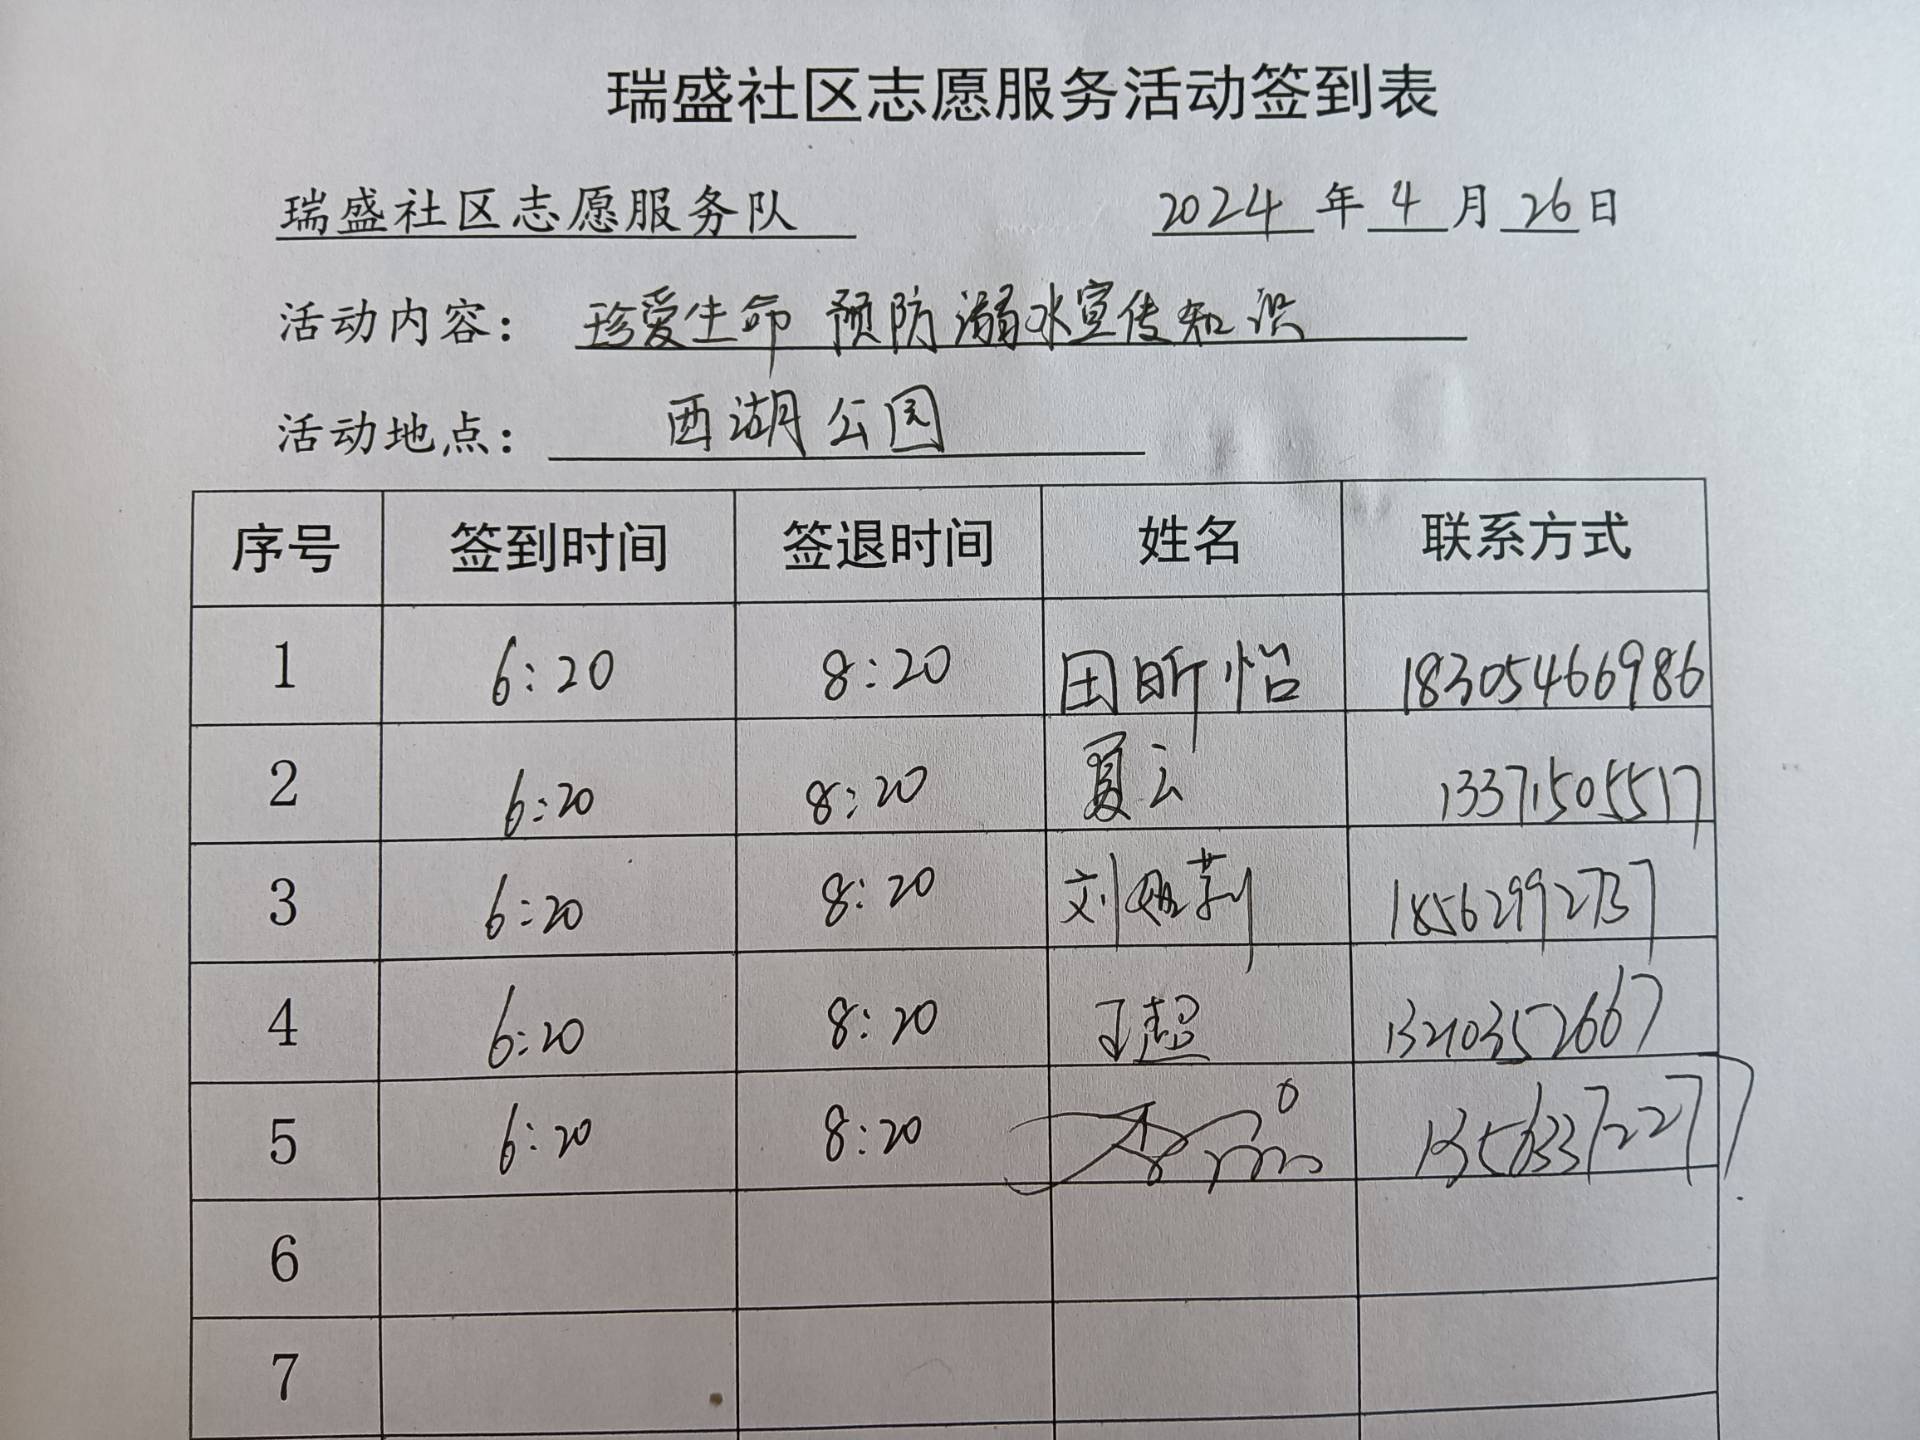 瑞盛社区志愿服务活动签到表
瑞盛社区志愿服务队 2024 年 4 月 26 日
活动内容： 珍爱生命 预防溺水宣传知识
活动地点： 西湖公园
序号 签到时间 签退时间 姓名 联系方式
1 6:20 8:20 田昕怡 18305466986
2 6:20 8:20 夏云 13371505517
3 6:20 8:20 刘 莉 18562992737
4 6:20 8:20 王超 13210352667
5 6:20 8:20
6
7